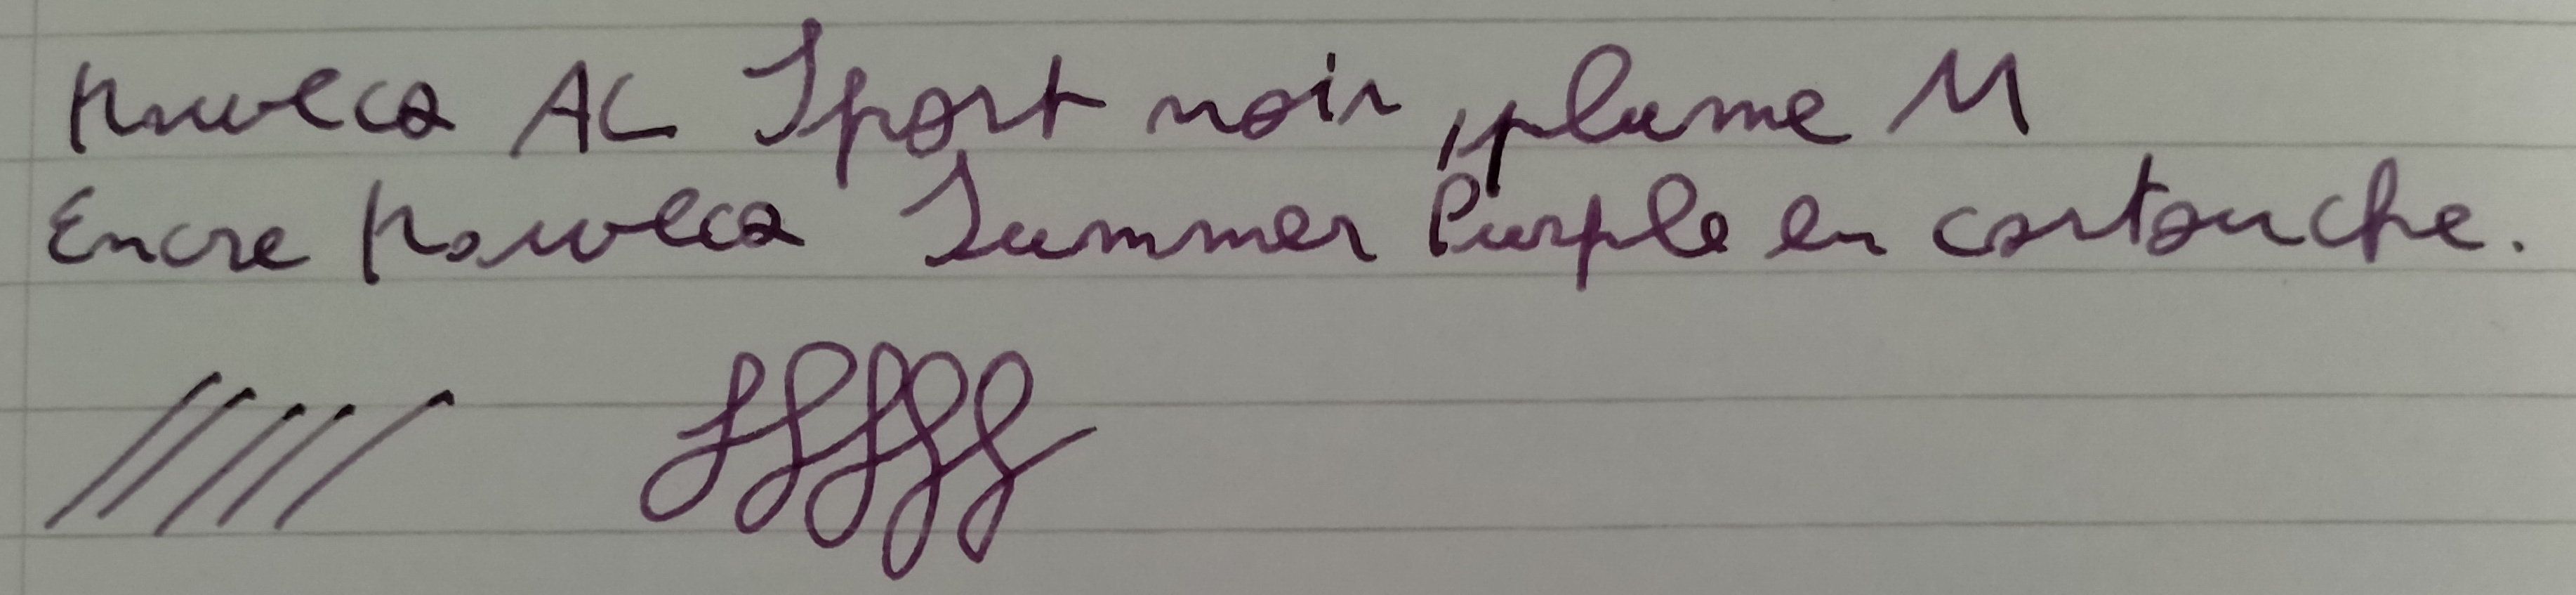 Kaweco AC Sport noir, plume M
Encre Kaweco Summer Purple en cartouche.